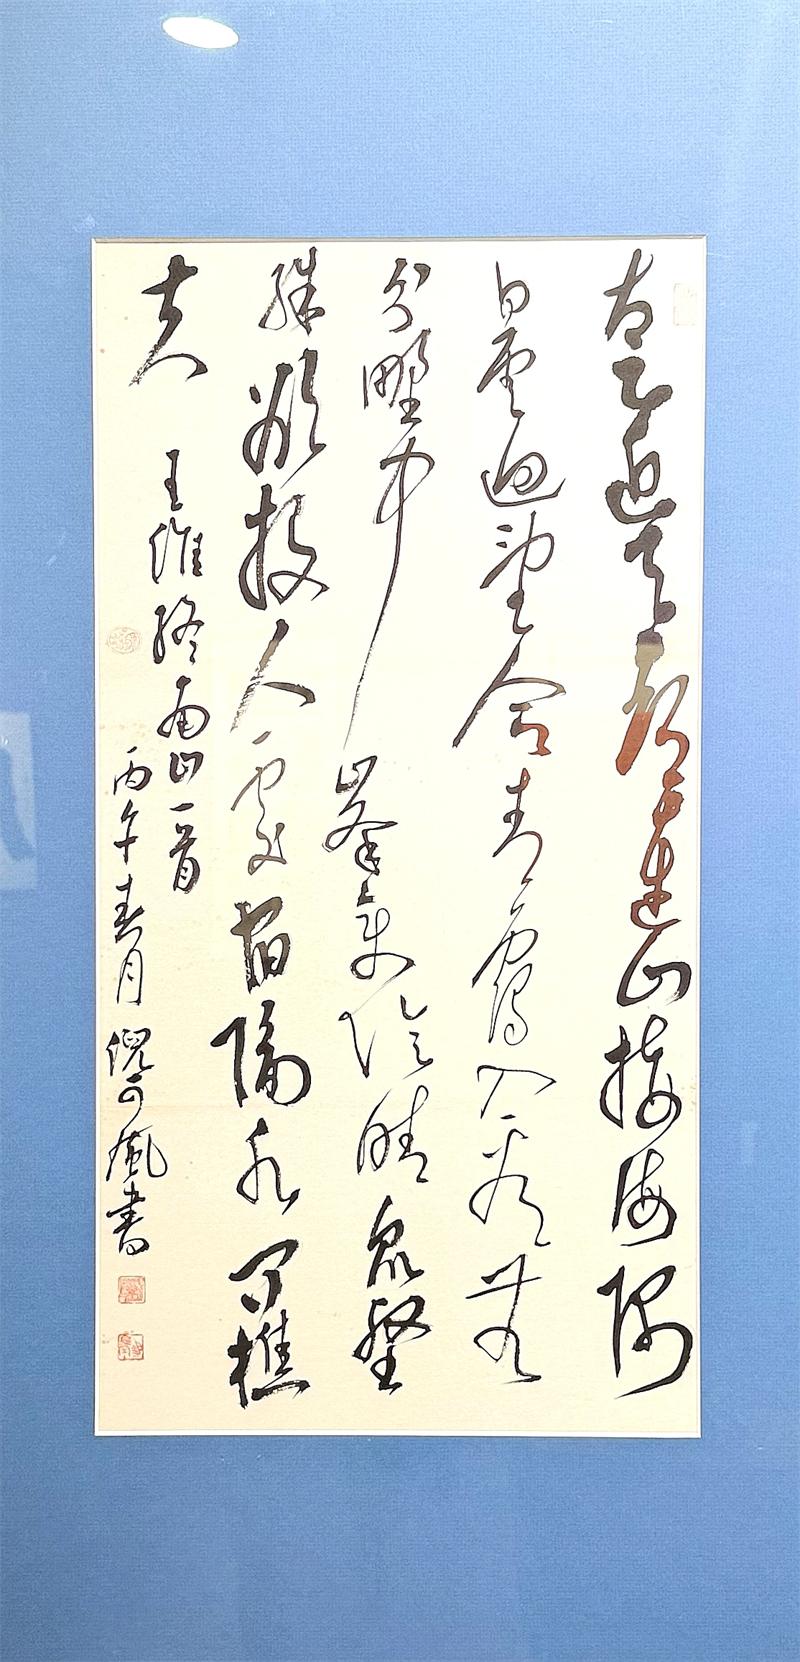 太乙近天都連山接海隅
白雲迴望合青靄入看無
分野中峯變陰晴眾壑
殊欲投人處宿隔水問樵
夫 王維終南山一首
丙午春月倪可風書